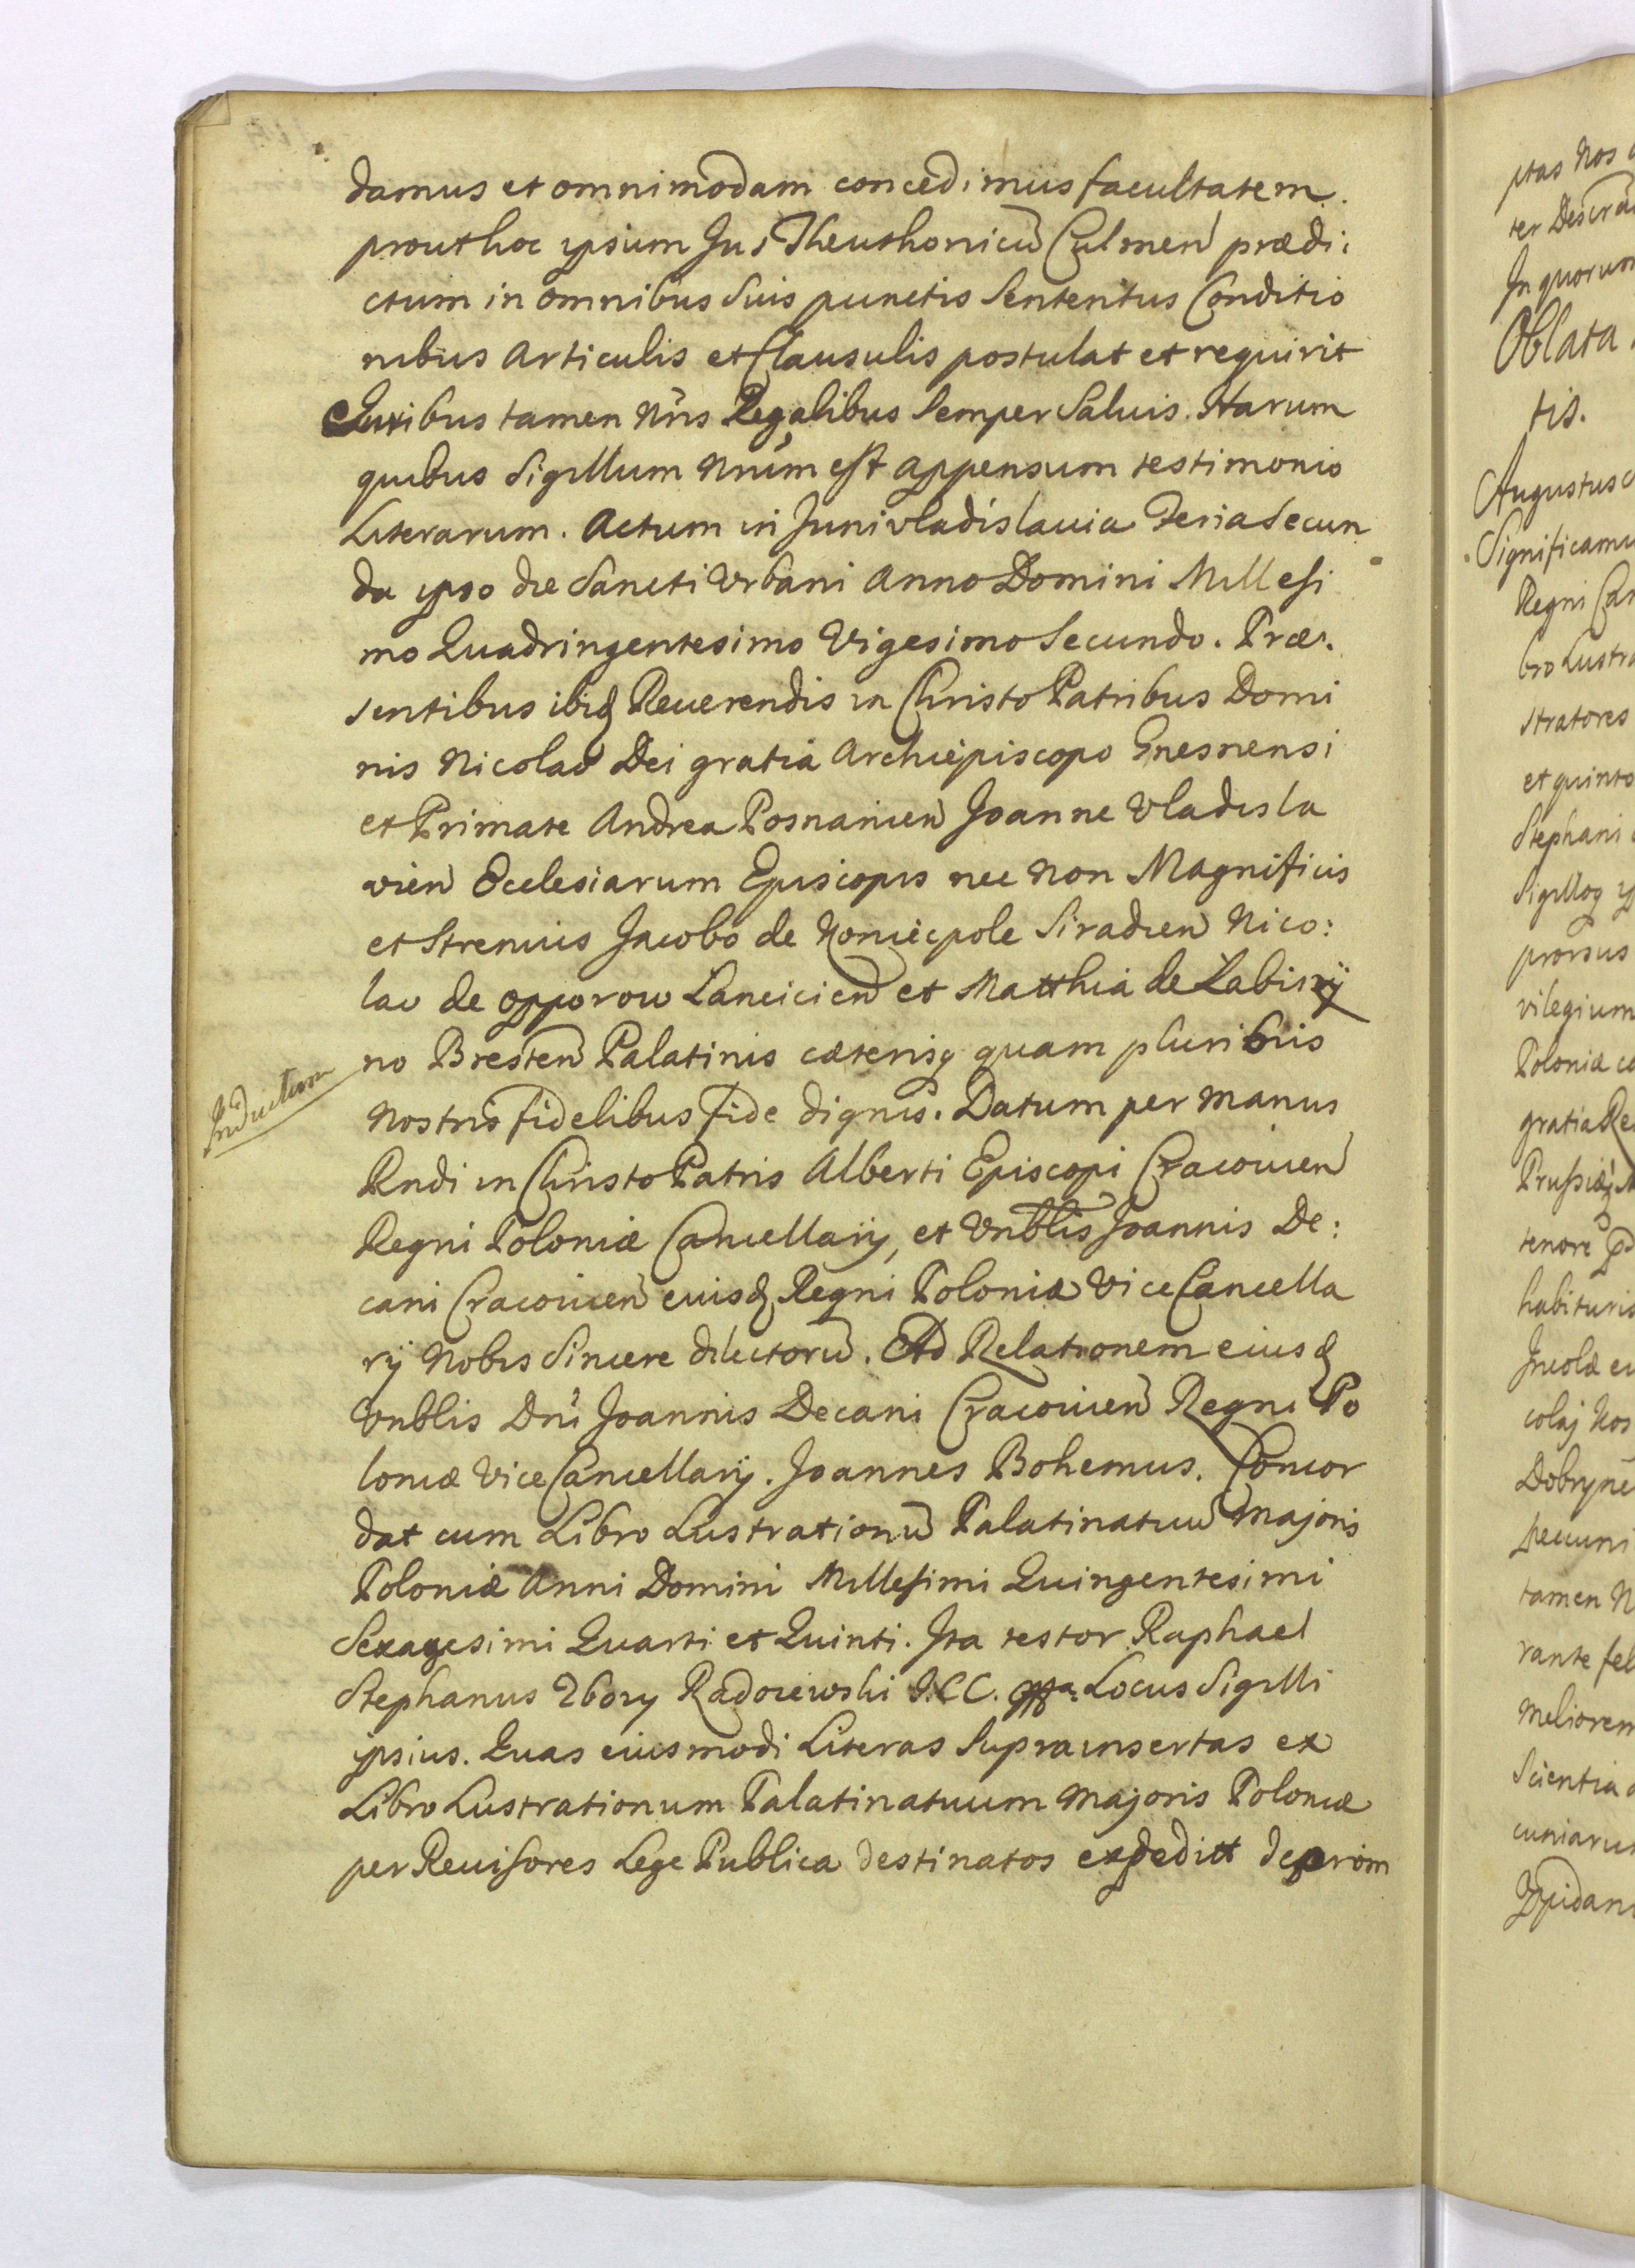 damus et omnimodam concedimus facultatem.
prout hoc ipsum Jus Theuthonicū Culmen̄ prædi:
ctum in omnibus Suis punctis Sententiis Conditio
nibus Articulis et Clausulis postulat et requirit
Juribus tamen Nr̄is Regalibus Semper Saluis. Harum
quibus Sigillum Nrūm est appensum testimonio
Literarum. Actum in Junivladislauia Feria Secun
da ipso die Sancti Urbani Anno Domini Millesi
mo Quadringentesimo Vigesimo Secundo. Præ:
sentibus ibid Reuerendis in Christo Patribus Domi
nis Nicolao Dei gratia Archiepiscopo Gnesnensi
et Primate Andrea Posnanien̄ Joanne Vladisla
vien̄ Ecclesiarum Episcopis nec non Magnificis
et Strenuis Jacobo de Koniecpole Siradien̄ Nico:
lao de Opporow Lancicien̄ et Matthia de Labiszy
no Bresten̄ Palatinis cæterisq quam pluribus
Inductum
Nostris fidelibus fide dignis. Datum per manus
Rndi in Christo Patris Alberti Episcopi Cracouien̄
Regni Poloniæ Cancellarij, et Vnblis Joannis De:
cani Cracouien̄ eiusd Regni Poloniæ Vice Cancella
rij Nobis Sincere dilectorū. Ad Relationem eiusd
Vnblis Dnī Joannis Decani Cracouien̄ Regni Po
loniæ Vice Cancellarij. Joannes Bohemus. Concor
dat cum Libro Lustrationū Palatinatuū Majoris
Poloniæ Anni Domini Millesimi Quingentesimi
Sexagesimi Quarti et Quinti. Ita testor Raphael
Stephanus Zbory Radoiewski Locus Sigilli
ipsius. Quas eiusmodi Literas Suprainsertas ex
Libro Lustrationum Palatinatuum Majoris Poloniæ
per Reuisores Lege Publica destinatos expeditt deprom
ptas Nos
In quorum
Oblata
tis.
Augustus
Significamu
Regni
bro Lustra
stratores
et quinto
Stephani
prorsus
vilegium
Poloniæ
gratia Re
tenore
habituris
Incolæ
colaj Nos
pecuni
tamen N
rante fel
meliorem
Scientia